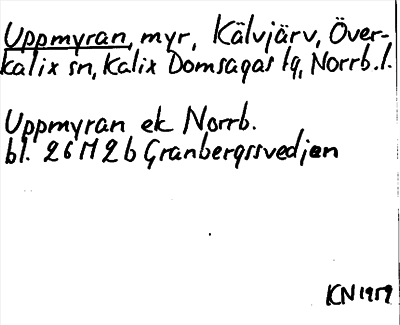 Uppmyran, myr, Kälvjärv, Över-
kalix sn, Kalix Domsagas lg, Norrb.l.
Uppmyran ek Norrb.
bl. 26 M 2 b Granbergssvedjan
KN 1959